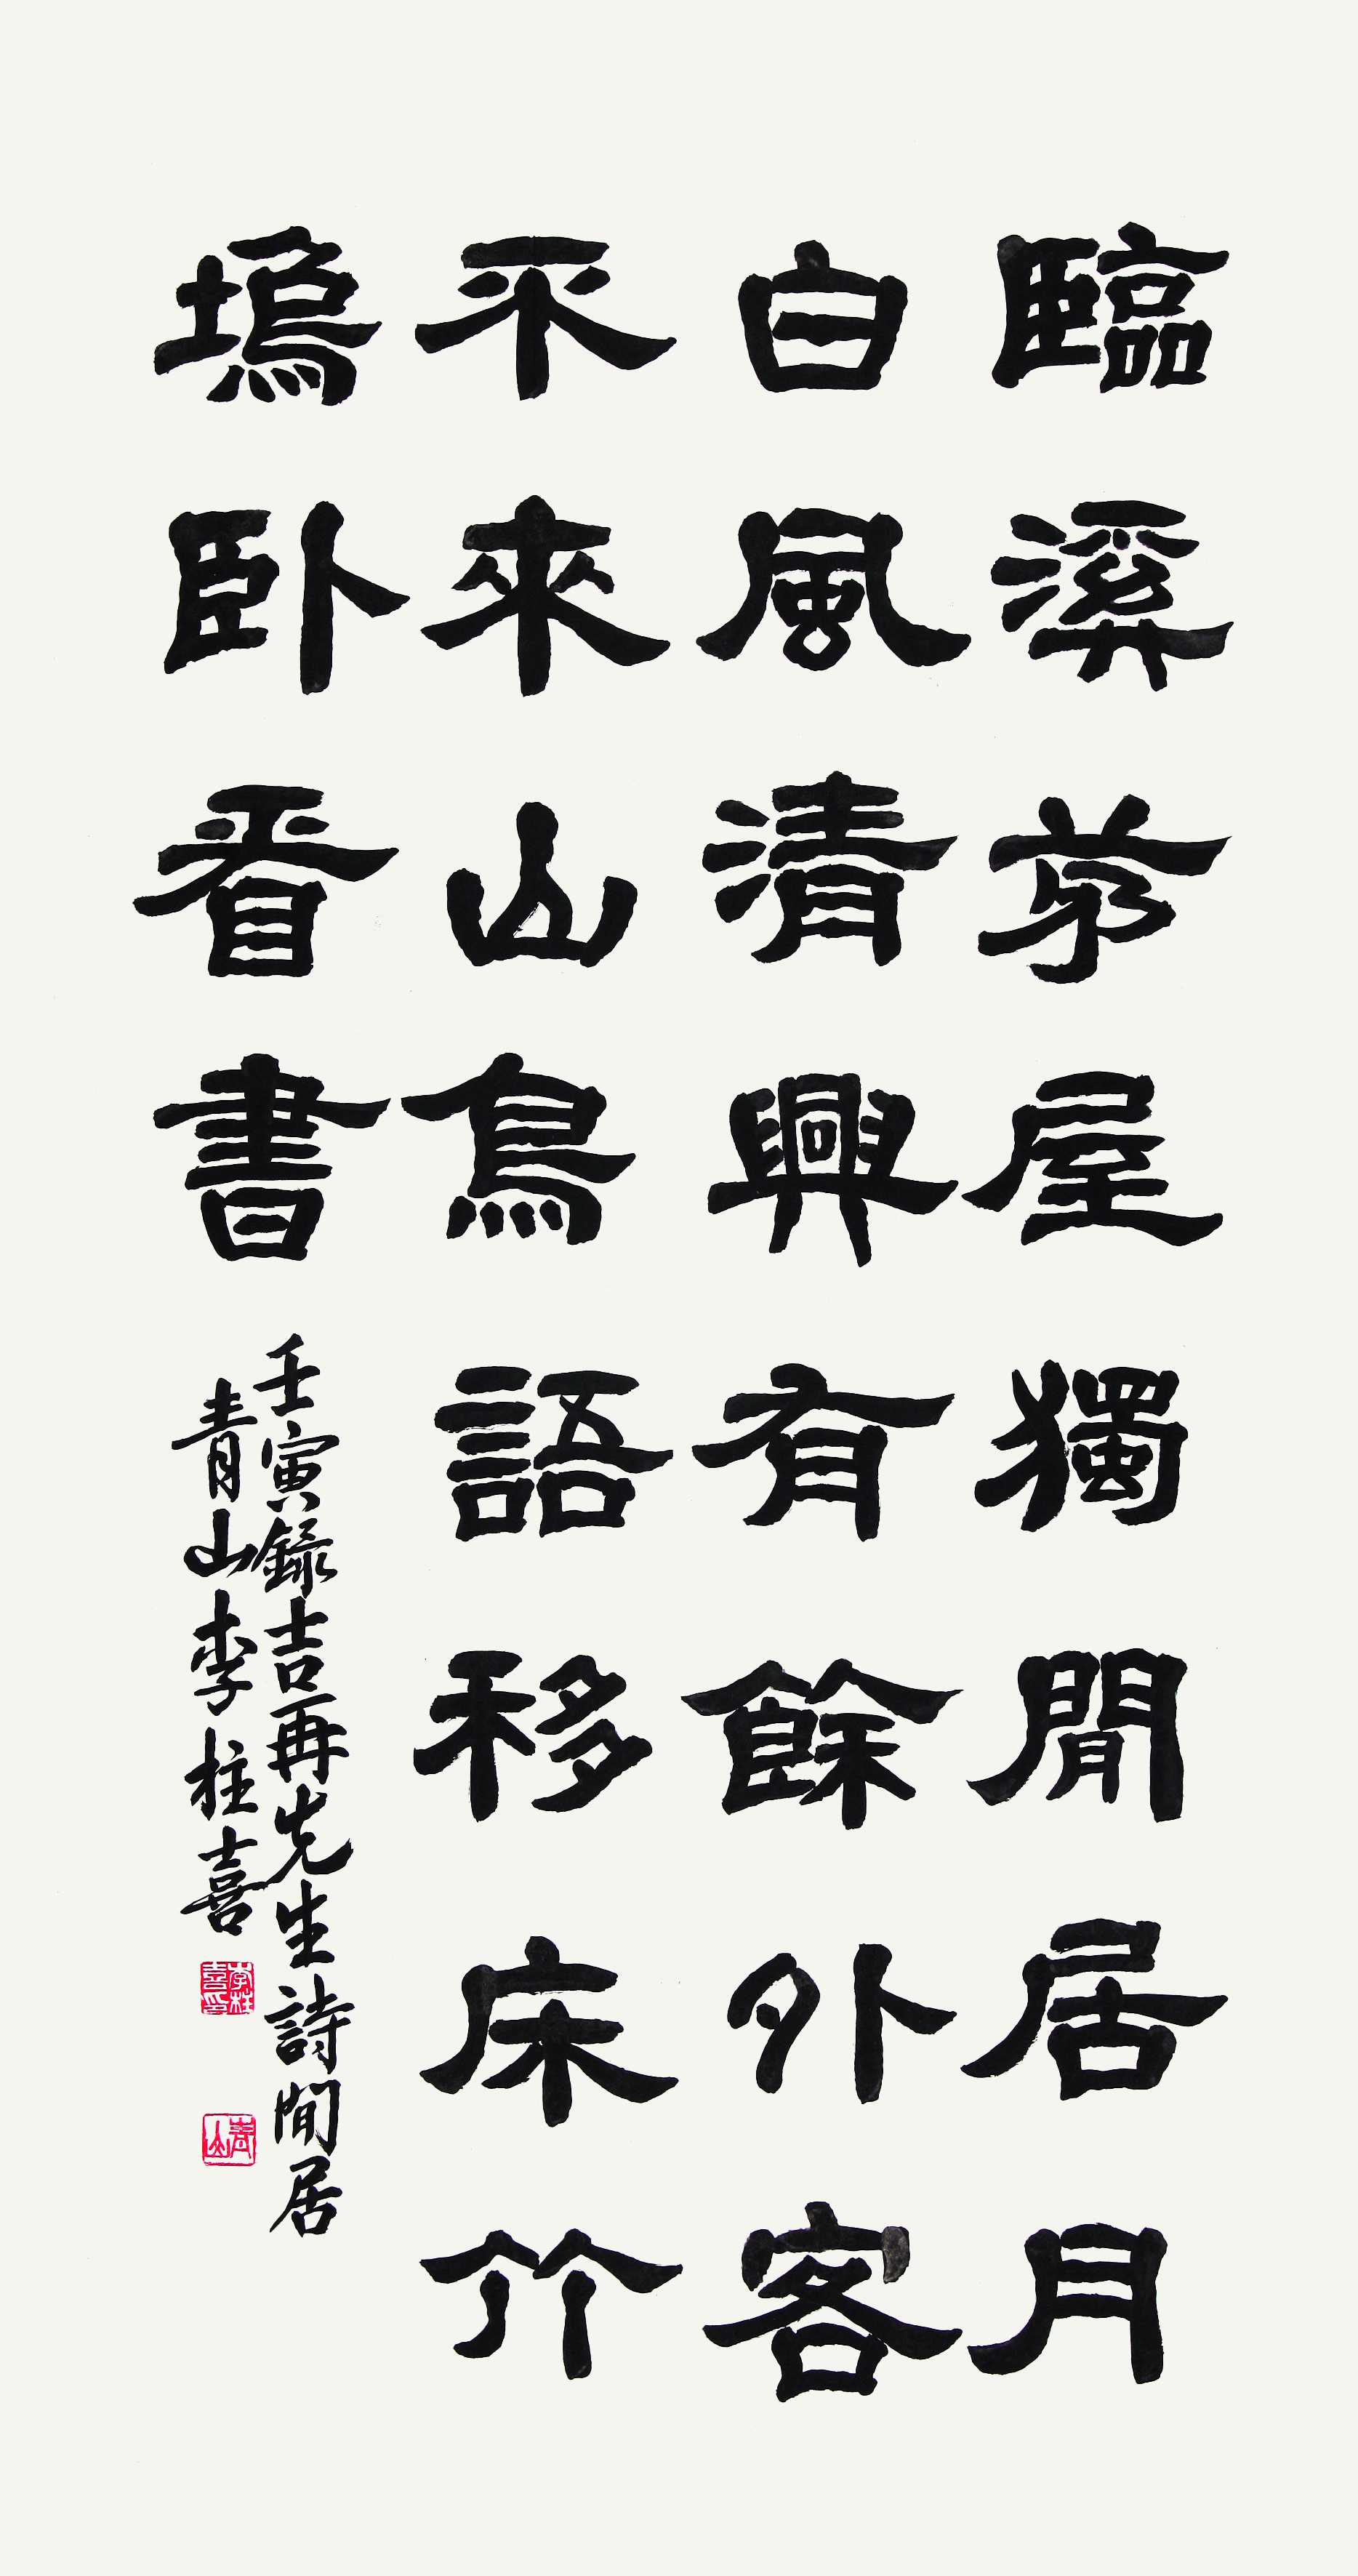 臨溪茅屋獨閒居月
白風清興有餘外客
不來山鳥語移床竹
塢卧看書
壬寅錄吉再先生詩閒居
青山李柱喜
李柱喜印
青山